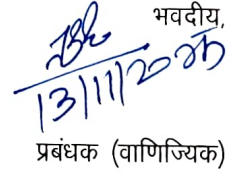 भवदीय,
13/11/2025
प्रबंधक (वाणिज्यिक)